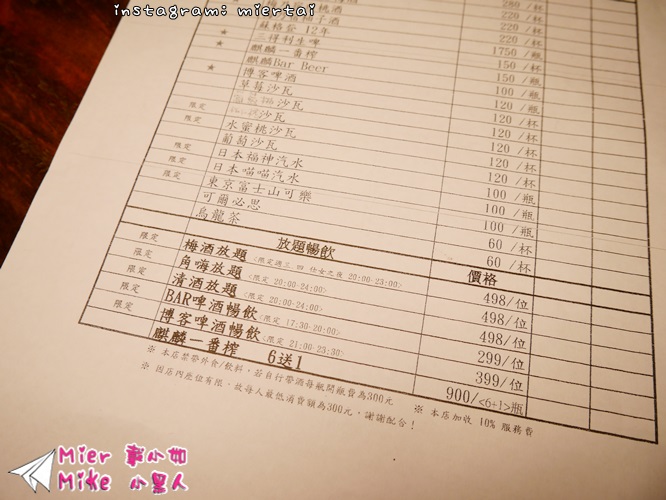 instagram: miertai
280 /杯
220 /杯
220 /杯
蘇格登 12年 1750/瓶
★ 三得利生啤 150 /杯
★ 麒麟一番榨 150 /瓶
麒麟Bar Beer 100 /瓶
★ 博客啤酒 120 /瓶
草莓沙瓦 120 /杯
沙瓦 120 /杯
限定 沙瓦 120 /杯
限定 水蜜桃沙瓦 120 /杯
葡萄沙瓦
限定 日本福神汽水 100 /瓶
限定 日本喵喵汽水 100 /瓶
限定 東京富士山可樂 100 /瓶
可爾必思 60 /杯
烏龍茶 60 /杯
放題暢飲 價格
限定 梅酒放題 <限定週三 四 仕女之夜 20:00-23:00> 498/位
限定 角嗨放題 <限定 20:00-24:00> 498/位
限定 清酒放題 <限定 20:00-24:00> 498/位
限定 BAR啤酒暢飲 <限定 17:30-20:00> 299/位
限定 博客啤酒暢飲 <限定 21:00-23:30> 399/位
麒麟一番榨 6送1 900/<6+1>瓶
※ 本店禁帶外食/飲料，若自行帶酒每瓶開瓶費為300元 ※ 本店加收 10% 服務費
※ 因店內座位有限，故每人最低消費額為300元，謝謝配合！
Mier 小如
Mike 小黑人